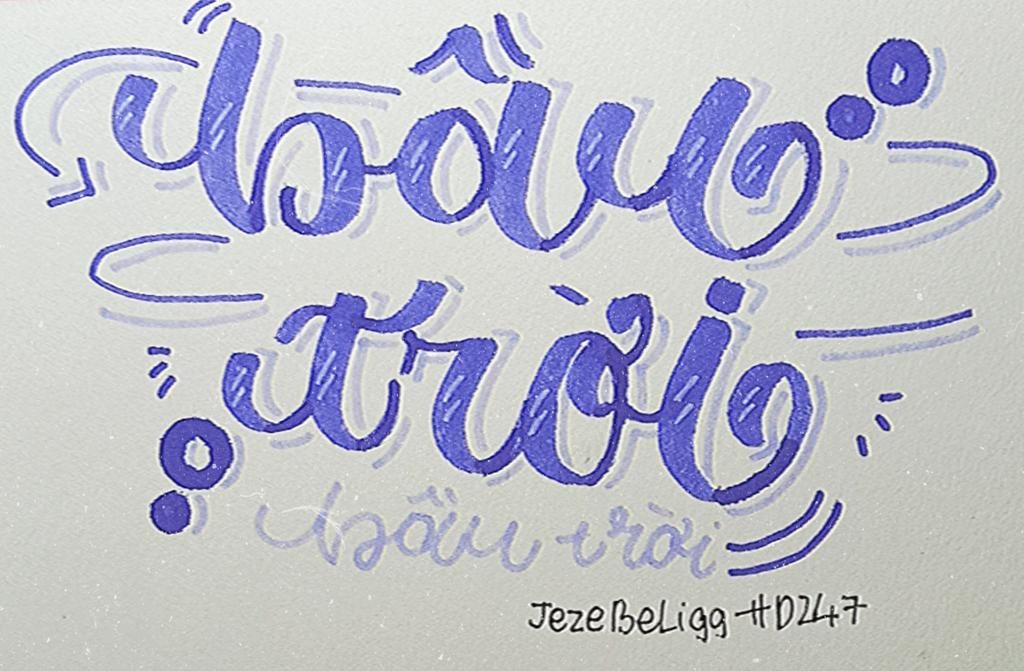 bầu
trời
bầu trời
JezeBeLigg #D247